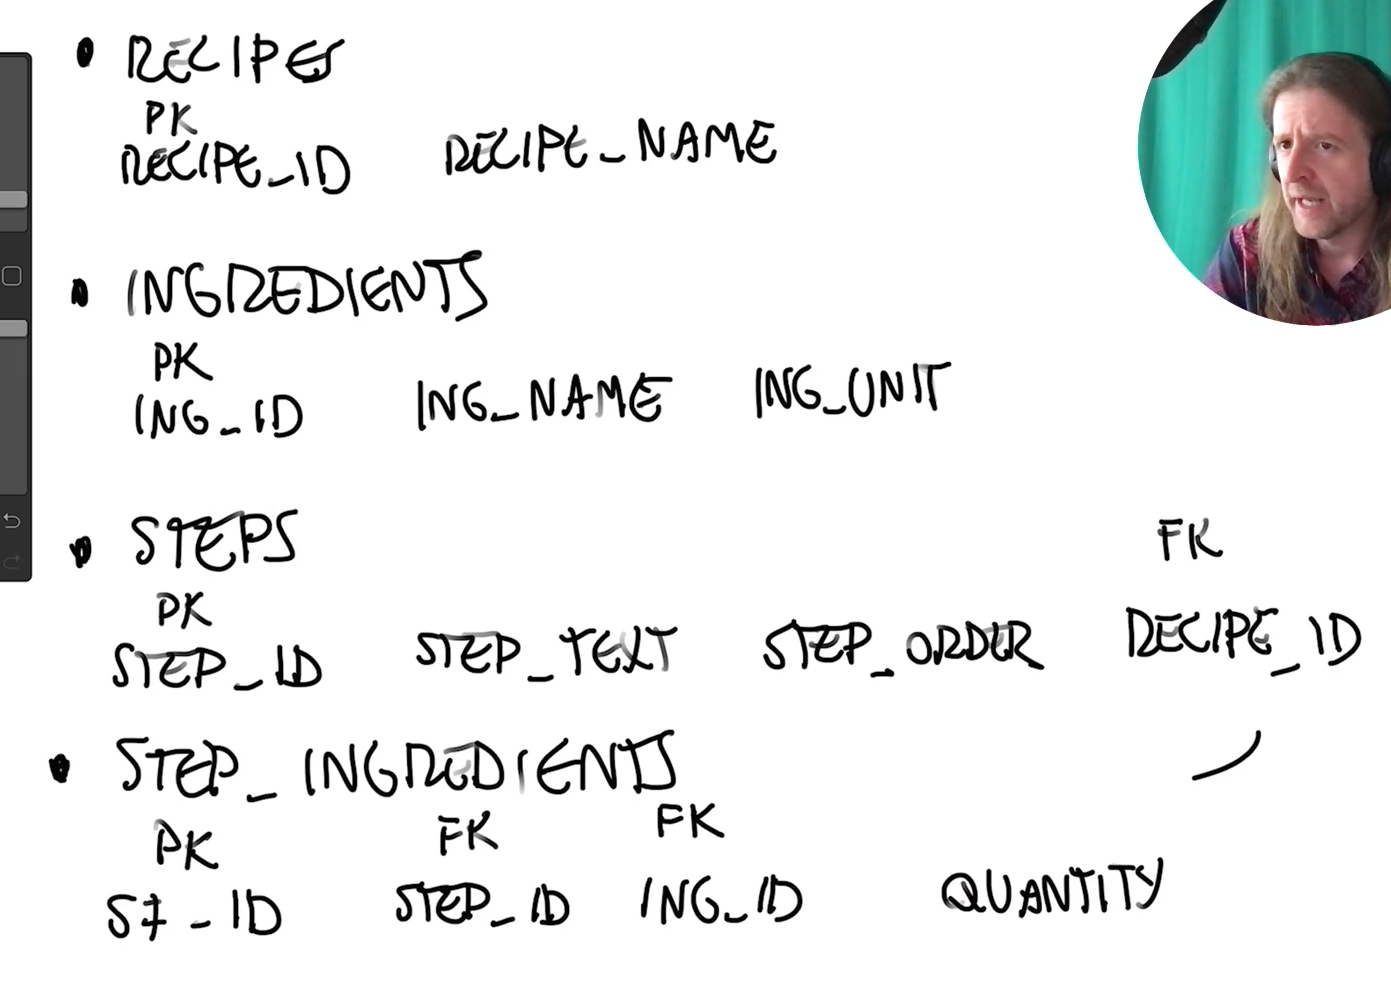 • RECIPES
PK
RECIPE_ID RECIPE_NAME
• INGREDIENTS
PK
ING_ID ING_NAME ING_UNIT
• STEPS
PK FK
STEP_ID STEP_TEXT STEP_ORDER RECIPE_ID
• STEP_INGREDIENTS
PK FK FK
SI_ID STEP_ID ING_ID QUANTITY